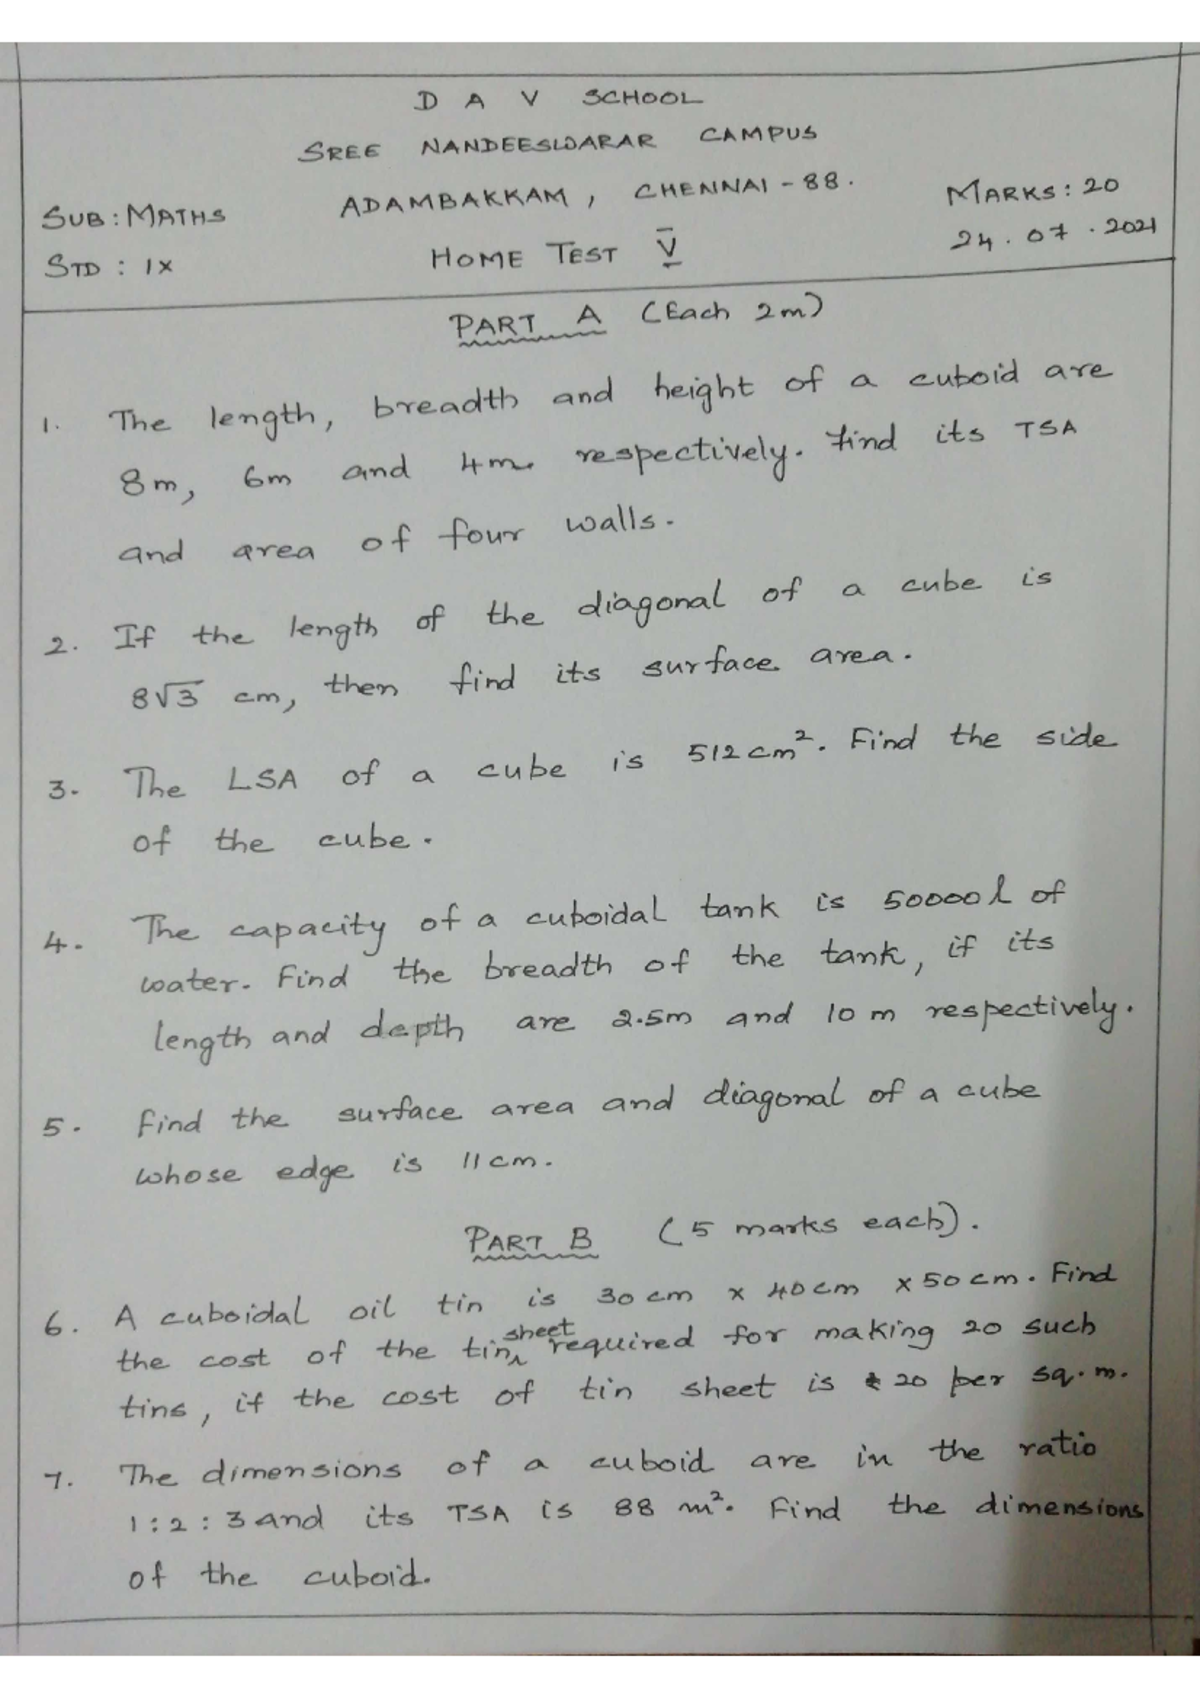 D A V SCHOOL
SREE NANDEESWARAR CAMPUS
ADAMBAKKAM, CHENNAI - 88.
SUB: MATHS
MARKS: 20
STD : IX
HOME TEST V
24.07.2021
PART A (Each 2m)
1. The length, breadth and height of a cuboid are
8m, 6m and 4m respectively. Find its TSA
and area of four walls.
2. If the length of the diagonal of a cube is
8√3 cm, then find its surface area.
3. The LSA of a cube is 512 cm². Find the side
of the cube.
4. The capacity of a cuboidal tank is 50000 l of
water. Find the breadth of the tank, if its
length and depth are 2.5m and 10 m respectively.
5. Find the surface area and diagonal of a cube
whose edge is 11 cm.
PART B (5 marks each).
6. A cuboidal oil tin is 30 cm x 40 cm x 50 cm. Find
the cost of the tin sheet required for making 20 such
tins, if the cost of tin sheet is ₹ 20 per sq.m.
7. The dimensions of a cuboid are in the ratio
1:2:3 and its TSA is 88 m². Find the dimensions
of the cuboid.